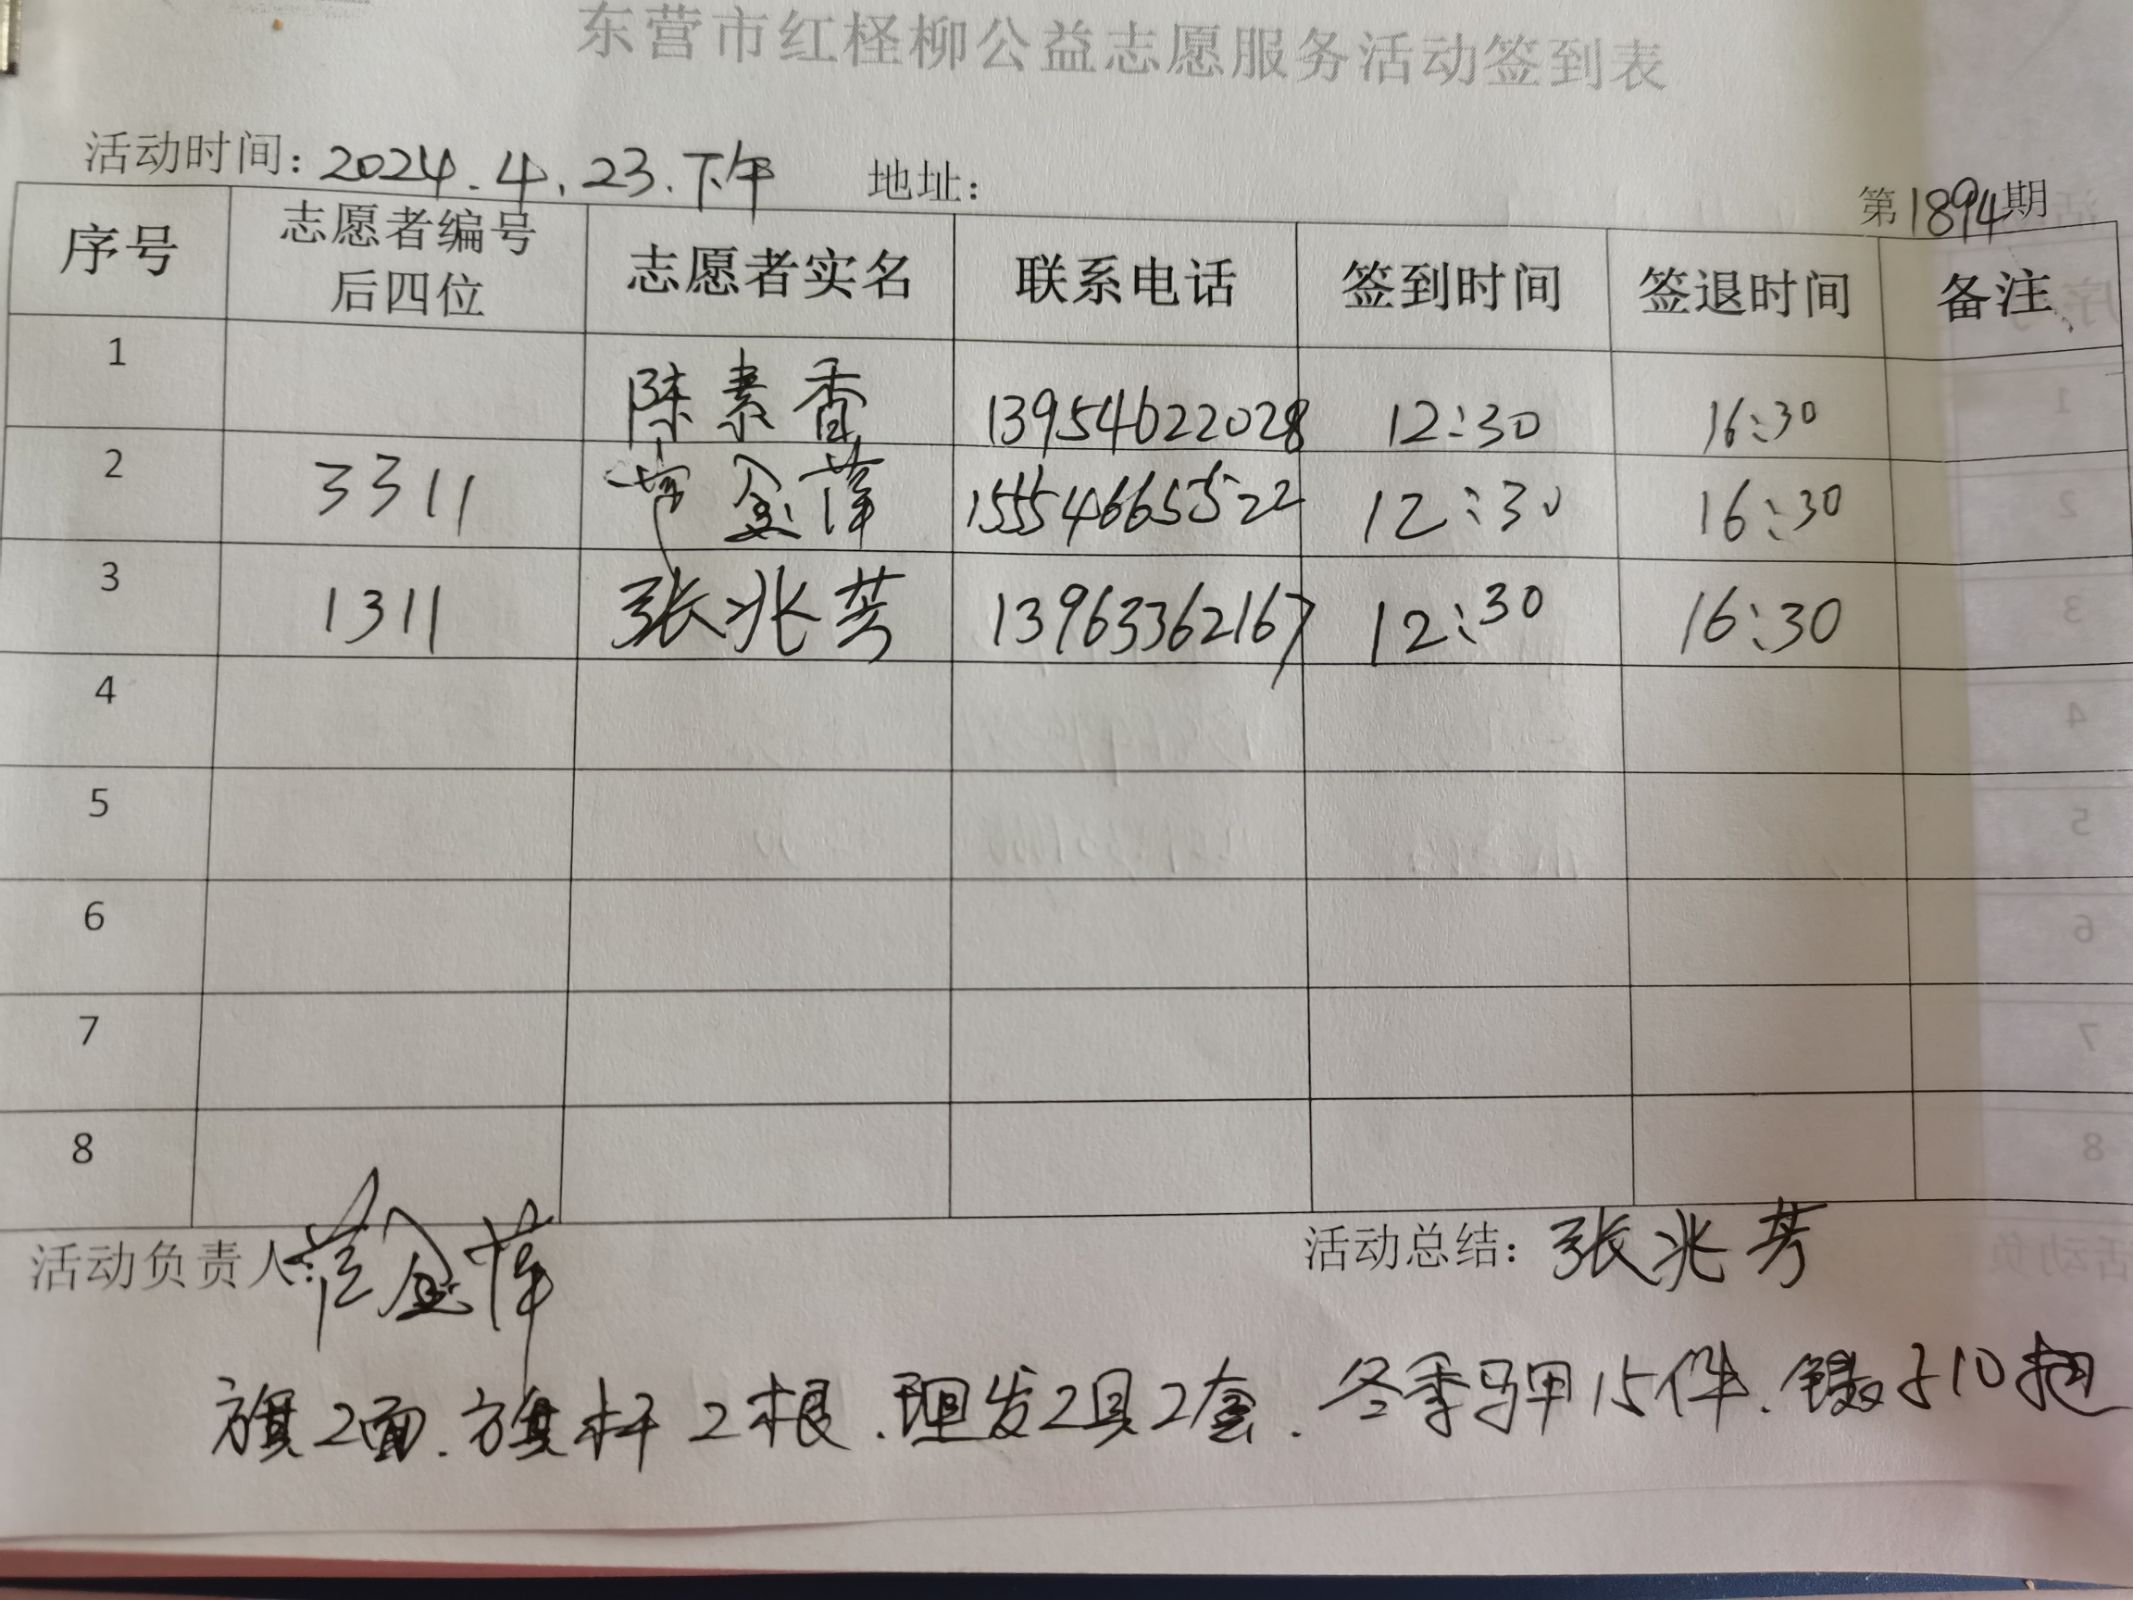 东营市红柽柳公益志愿服务活动签到表
活动时间：2024.4.23.下午 地址： 第1894期
序号 志愿者编号后四位 志愿者实名 联系电话 签到时间 签退时间 备注
1 陈素香 13954622028 12:30 16:30
2 3311 金萍 15554665522 12:30 16:30
3 1311 张兆芳 13963362167 12:30 16:30
4
5
6
7
8
活动负责人： 金萍 活动总结：张兆芳
旗2面.旗杆2根.理发工具2套.冬季马甲15件.镊子10把